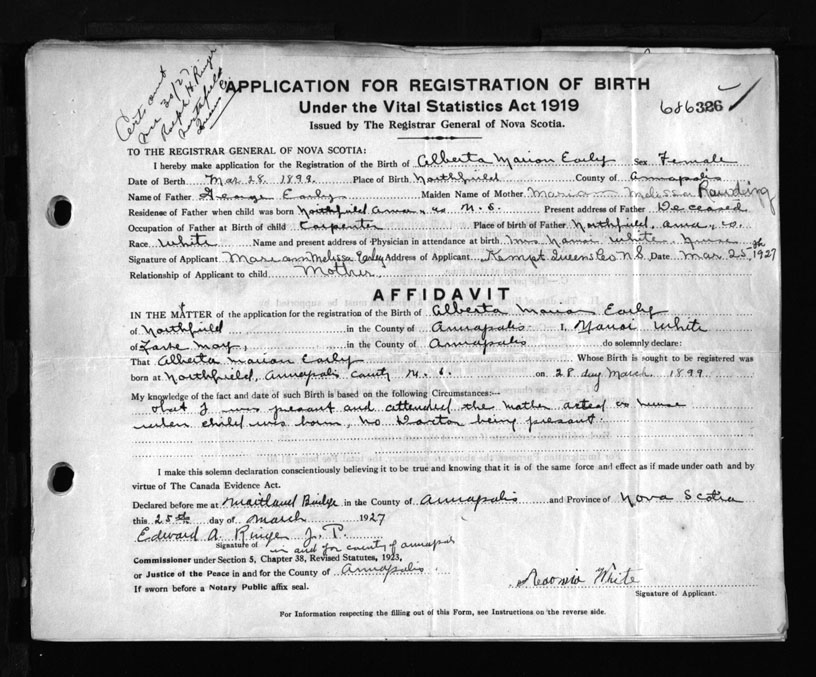 Cert. out
Mar 30/27
Ralph H. Ringer
Northfield
Queens Co.
APPLICATION FOR REGISTRATION OF BIRTH
Under the Vital Statistics Act 1919
686326
Issued by The Registrar General of Nova Scotia.
TO THE REGISTRAR GENERAL OF NOVA SCOTIA:
I hereby make application for the Registration of the Birth of Alberta Marion Early Sex Female
Date of Birth Mar 28. 1899. Place of Birth Northfield County of Annapolis
Name of Father George Early Maiden Name of Mother Melissa Rawding
Residence of Father when child was born Northfield Anna. Co N. S. Present address of Father Deceased
Occupation of Father at Birth of child Carpenter Place of birth of Father Northfield, Anna, Co.
Race White Name and present address of Physician in attendance at birth White Nurse
Signature of Applicant Mariann Melissa Early Address of Applicant Kempt Queens Co N.S. Date Mar. 25th, 1927
Relationship of Applicant to child Mother
AFFIDAVIT
IN THE MATTER of the application for the registration of the Birth of Alberta Marion Early
of Northfield in the County of Annapolis I, White
of in the County of Annapolis do solemnly declare:
That Alberta Marion Early Whose Birth is sought to be registered was
born at Northfield, Annapolis County N. S. on 28 day March 1899
My knowledge of the fact and date of such Birth is based on the following Circumstances:—
that I was presant and attended the mother acted as nurse
when child was born, no Doctor being presant.
I make this solemn declaration conscientiously believing it to be true and knowing that it is of the same force and effect as if made under oath and by
virtue of The Canada Evidence Act.
Declared before me at Maitland Bridge in the County of Annapolis and Province of Nova Scotia
this 25th day of March 1927
Edward A. Ringer J. P.
Signature of in and for county of Annapolis
Commissioner under Section 5, Chapter 38, Revised Statutes, 1923,
or Justice of the Peace in and for the County of Annapolis.
If sworn before a Notary Public affix seal.
White
Signature of Applicant.
For Information respecting the filling out of this Form, see Instructions on the reverse side.